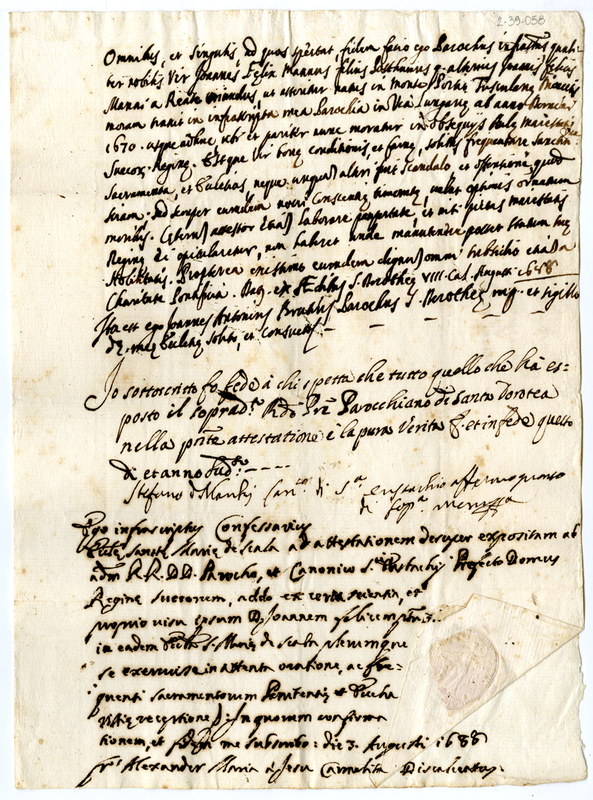 2-39-058
Omnibus, et singulis ad quos spectat, fidem facio ego Parochus infrascriptus
nobilis Vir Joannes Felix Mannus filius Posthumus q. alterius Joannis Felicis
Mannij a Reate oriundus, et asseritur natus in Monte Portio Tusculanę
moram traxit in infrascripta mea Parochia in Via Lungarę ab anno Domini
1670. usque adhuc, ubi et pariter nunc moratur in obsequijs
Suecorū Reginę. Estque Vir bonę conditionis, et famę, solitus frequentare
Sacramenta, et Ecclesias, neque unquam alteri fuit scandalo et offensioni, quod
sciam. Sed semper eumdem novi
moribus. laborare paupertate, et nisi pietas maiestatis
Reginę ei opitularetur, non haberet unde manutenere posset statum suę
Nobilitatis. Propterea existimo eumdem dignum omni
Charitate Pontificia. Dat. ex Ędibus S. Dorotheę VIII. Cal. Augusti 1688
Ita est ego Joannes Antonius Parochus S. Dorotheę mp. et sigillo
meę Ecclesię solito, et consueto
Io sottoscritto fo fede à chi spetta che tutto quello che hà es-
posto il soprad.º Rdo Pre Parocchiano di Santa Dorotea
nella pnte attestatione è la pura Verità et in fede questo
dì et anno sud.º ----
Stefano Canco di Sta Eustachio affermo quanto
di sopa
Ego infrascriptus Confessarius
Eccłę Sanctę Marię de Scala ad attestationem desuper expositam ab
adm RR. DD. Parocho, et Canonico S. Eustachij Prefecto Domus
Reginę Suecorum, addo ex certa scientia, et
proprio visu ipsum D. Joannem Felicem
in eadem Eccła S. Marię de Scala plerumque
se exercuisse in attenta oratione, ac fre=
quenti Sacramentorum Penitentię et Eucha
ristię receptione: In quorum confirma
tionem, et fidem me subscribo: die 3. Augusti 1688
fr. Alexander Maria à Jesu Carmelita Discalceatus.